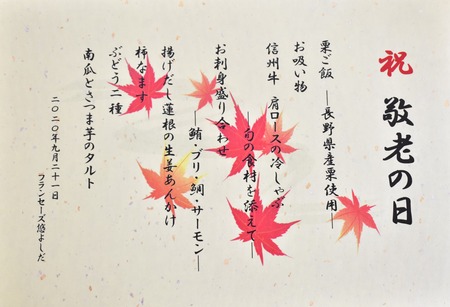 祝 敬老の日
栗ご飯 ―長野県産栗使用―
お吸い物
信州牛 肩ロースの冷しゃぶ
―旬の食材を添えて―
お刺身盛り合わせ
―鮪・ブリ・鯛・サーモン―
揚げだし蓮根の生姜あんかけ
柿なます
ぶどう二種
南瓜とさつま芋のタルト
二〇二〇年九月二十一日
フランセーズ悠よしだ